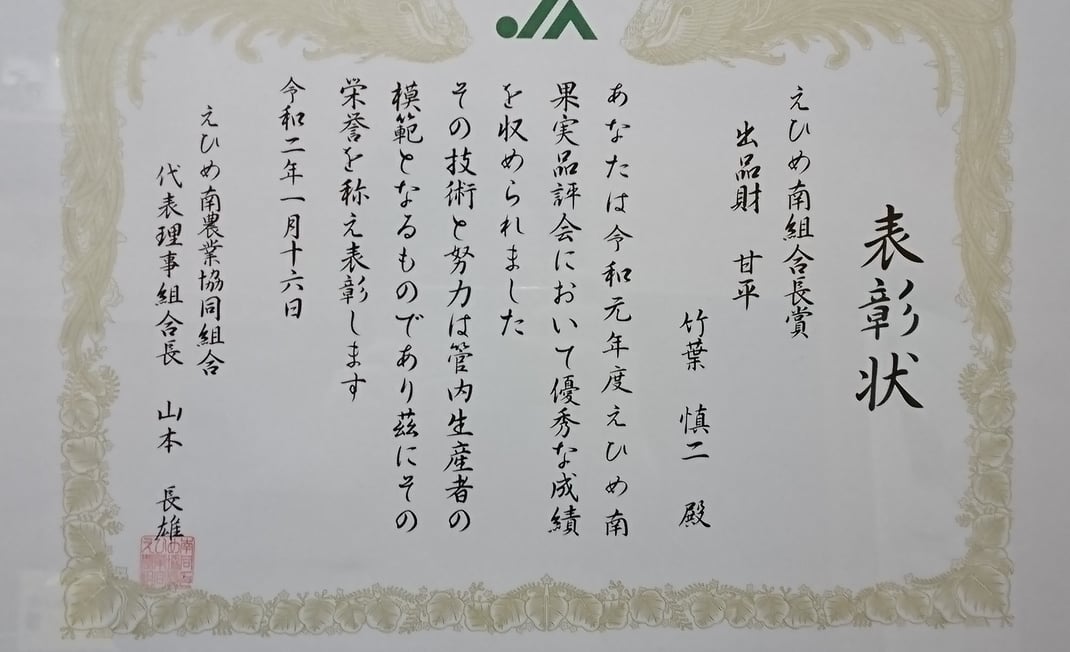 JA
表彰状
えひめ南組合長賞
出品財 甘平
竹葉 慎二 殿
あなたは令和元年度えひめ南
果実品評会において優秀な成績
を収められました
その技術と努力は管内生産者の
模範となるものであり茲にその
栄誉を称え表彰します
令和二年一月十六日
えひめ南農業協同組合
代表理事組合長 山本 長雄